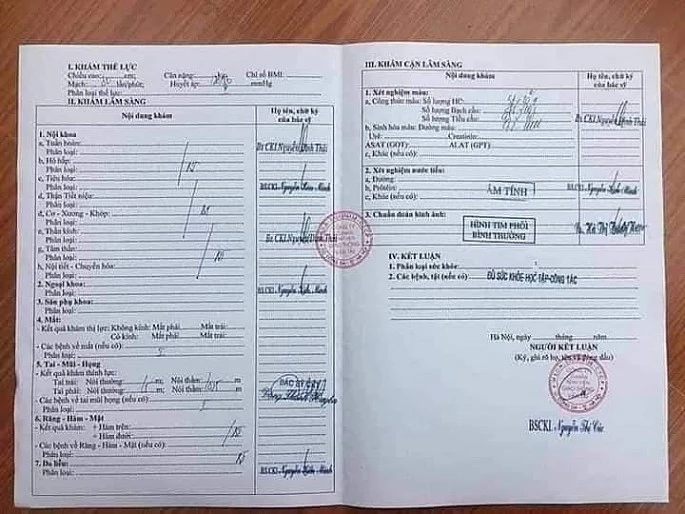 I. KHÁM THỂ LỰC
Chiều cao: cm; Cân nặng: Chỉ số BMI:
Mạch: lần/phút; Huyết áp: mmHg
Phân loại thể lực:
II. KHÁM LÂM SÀNG
Nội dung khám
Họ tên, chữ ký của bác sỹ
1. Nội khoa
a, Tuần hoàn:
Phân loại:
Bs CKI.Nguyễn Đình Thái
b, Hô hấp:
Phân loại:
c, Tiêu hóa:
Phân loại:
d, Thận Tiết niệu:
Phân loại:
d, Cơ - Xương - Khớp:
Phân loại:
e, Thần kinh:
Phân loại:
Bs CKI.Nguyễn Đình Thái
g, Tâm thần:
Phân loại:
h, Nội tiết - Chuyển hóa:
Phân loại:
2. Ngoại khoa:
Phân loại:
3. Sản phụ khoa:
Phân loại:
4. Mắt:
- Kết quả khám thị lực: Không kính: Mắt phải Mắt trái:
Có kính: Mắt phải Mắt trái:
- Các bệnh về mắt (nếu có):
Phân loại:
5. Tai - Mũi - Họng
- Kết quả khám thính lực:
Tai trái: Nói thường: m Nói thầm: m
Tai phải: Nói thường: m Nói thầm: m
- Các bệnh về tai mũi họng (nếu có):
Phân loại:
6. Răng - Hàm - Mặt
- Kết quả khám: + Hàm trên:
+ Hàm dưới:
- Các bệnh về Răng - Hàm - Mặt (nếu có)
Phân loại:
7. Da liễu:
Phân loại:
III. KHÁM CẬN LÂM SÀNG
Nội dung khám
Họ tên, chữ ký của bác sỹ
1. Xét nghiệm máu:
a, Công thức máu: Số lượng HC:
Số lượng Bạch cầu:
Số lượng Tiểu cầu:
b, Sinh hóa máu: Đường máu:
Urê: Creatinin:
ASAT (GOT): ALAT (GPT)
c, Khác (nếu có):
2. Xét nghiệm nước tiểu:
a, Đường:
b, Protein:
c, Khác (nếu có)
ÂM TÍNH
3. Chuẩn đoán hình ảnh:
HÌNH TIM PHỔI
BÌNH THƯỜNG
IV. KẾT LUẬN
1. Phân loại sức khỏe:
2. Các bệnh, tật (nếu có) ĐỦ SỨC KHỎE HỌC TẬP-CÔNG TÁC
Hà Nội, ngày tháng năm
NGƯỜI KẾT LUẬN
(Ký, ghi rõ họ, tên và đóng dấu)
BSCKI.